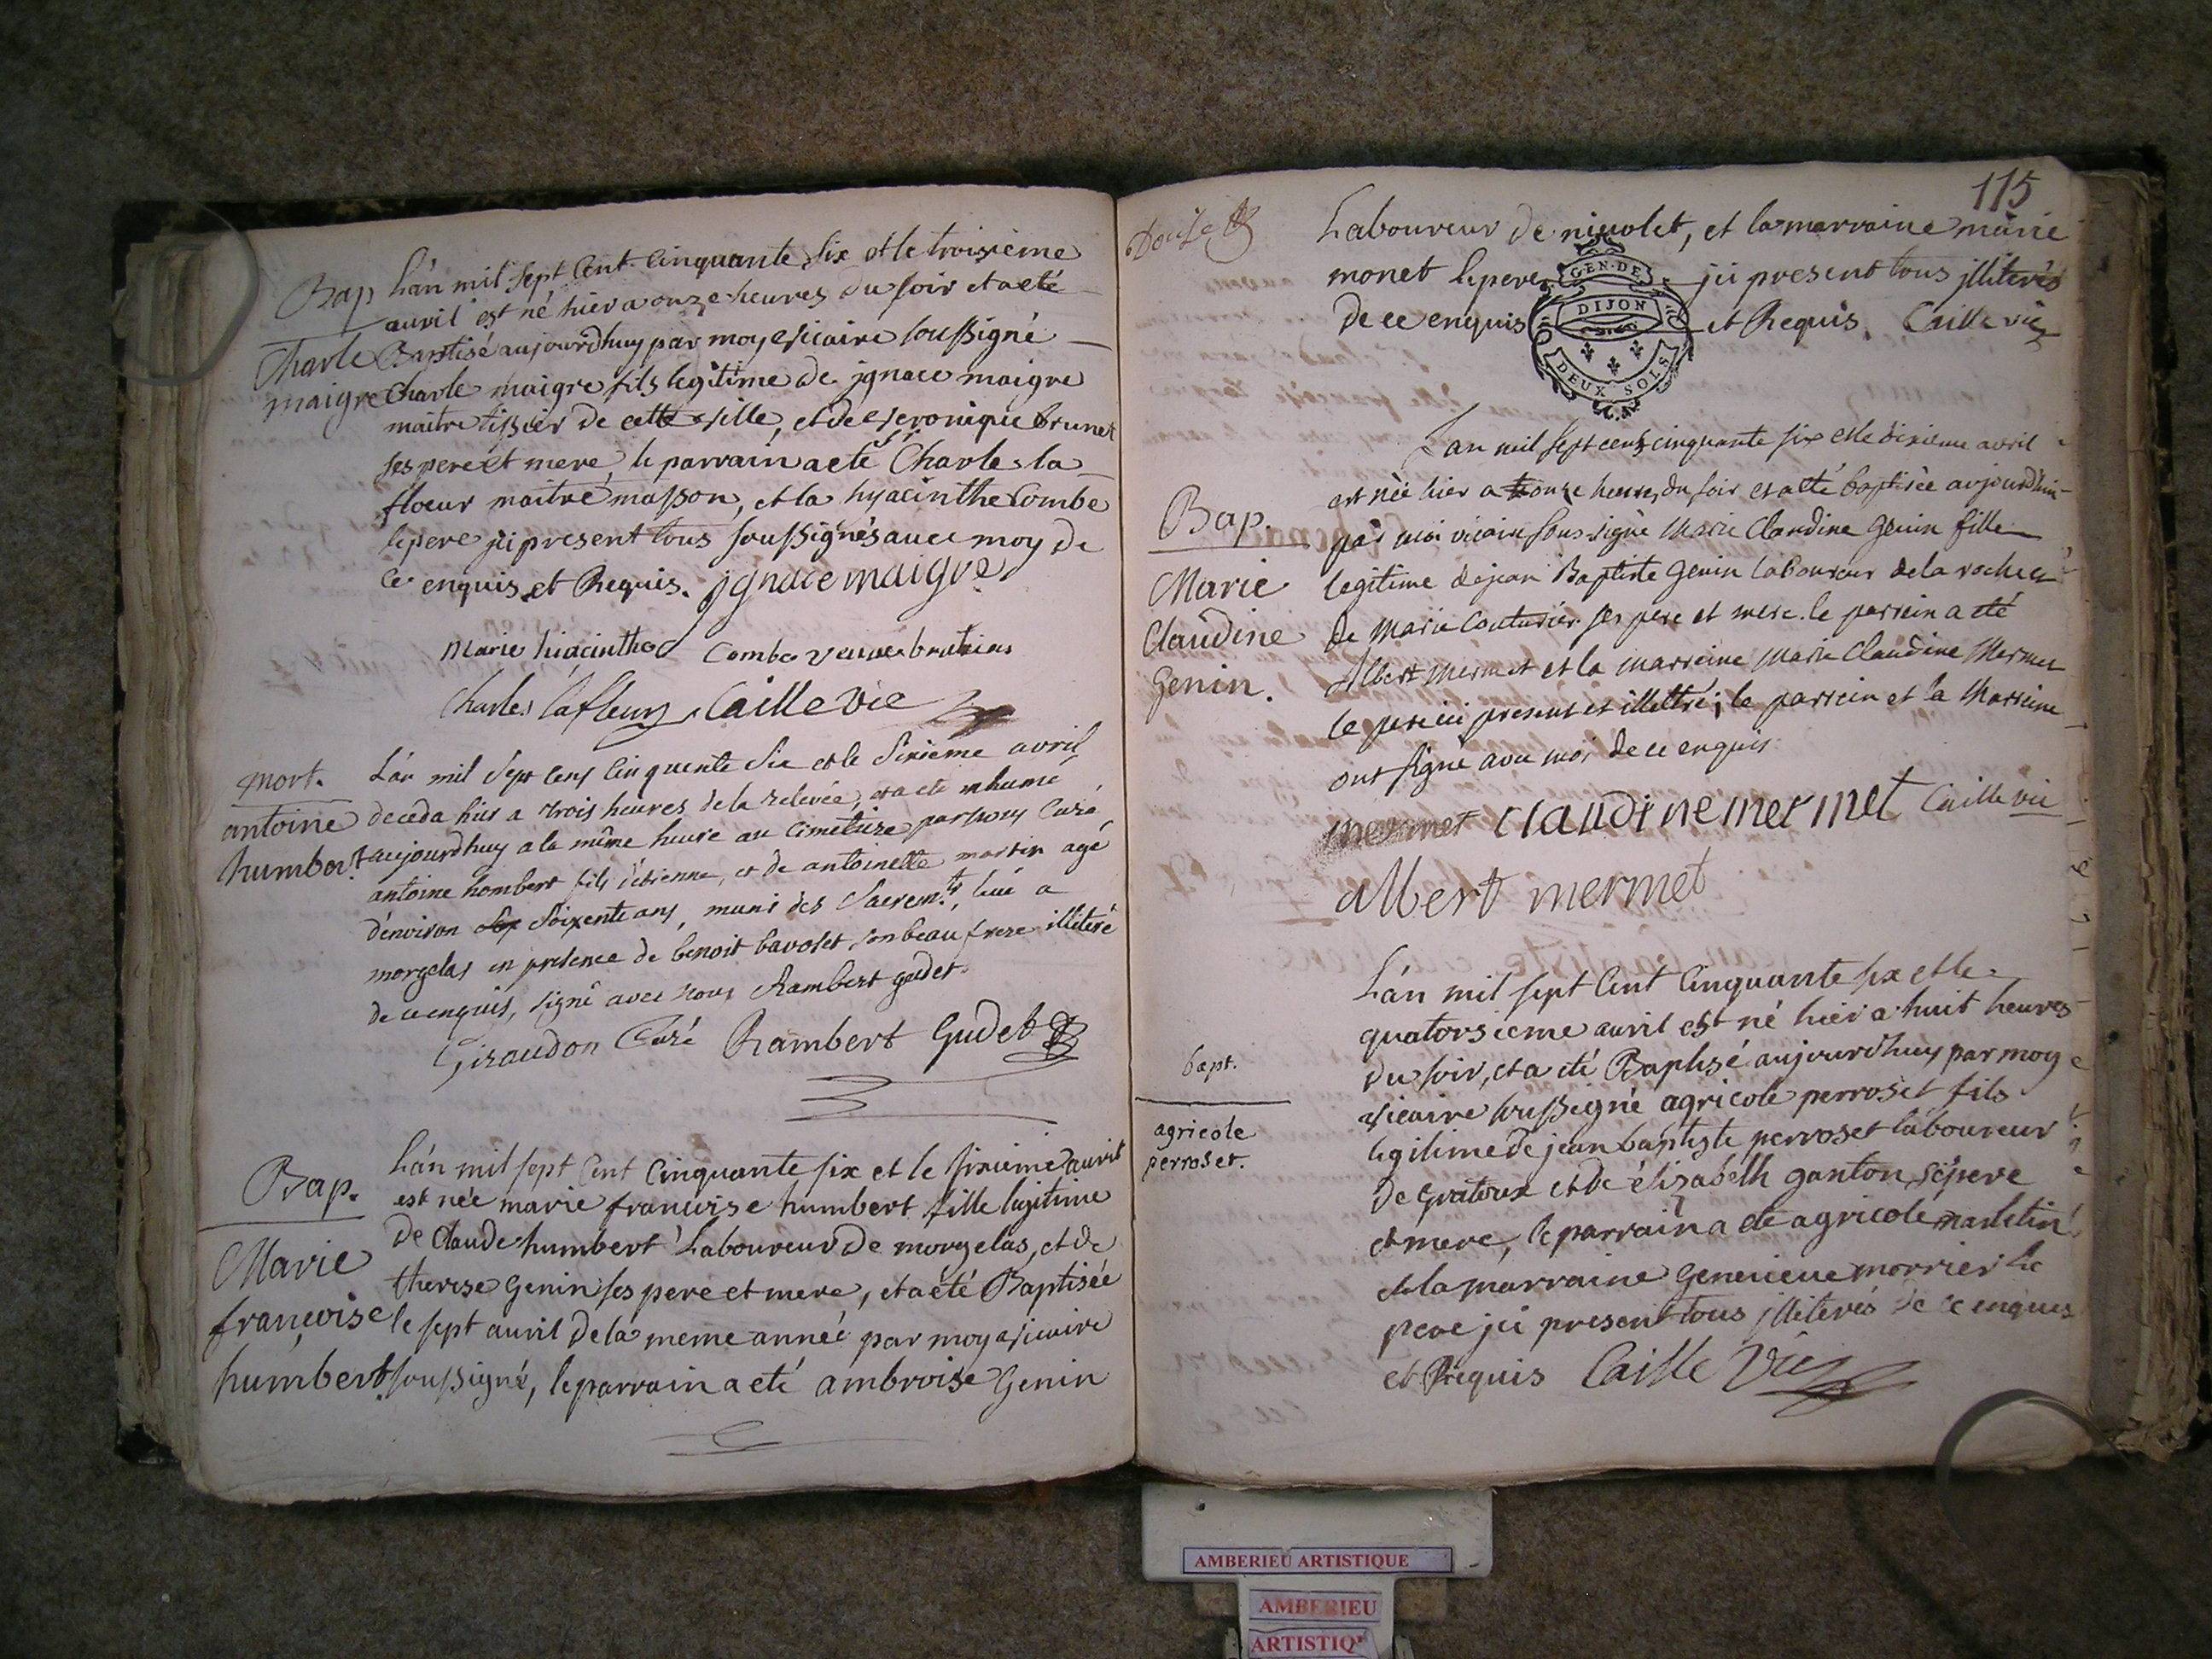 Bap
Charle
maigre
L'an mil sept Cent Cinquante Six et le troisieme
avril est né hier a onze heures du soir et a eté
Baptisé aujourdhuy par moy vicaire soussigné
Charle maigre fils legitime de jgnace maigre
maitre tissier de cette ville, et de veronique brunet
ses pere et mere, le parrain a eté Charle la
floeur maitre masson, et la hyacinthe Combe
le pere jci present tous soussignés avec moy de
ce enquis et Requis. jgnace maigre
Marie hiacinthe Combe veuve
Charles lafleur Caille vic
mort.
antoine
humbert
L'an mil Sept Cens Cinquente Six et le Sixieme avril
deceda hier a trois heures de la relevée, et a eté inhumé
aujourdhuy a la même heure au Cimetiere par nous Curé
antoine hombert fils d'etienne, et de antoinette martin agé
d'environ Soixente ans, muni des Sacremts, tué a
morgelas en presence de benoit bavoset son beau frere illiteré
de ce enquis, signé avec nous Rambert gudet
Giraudon Curé Rambert Gudet
Bap.
Marie
françoise
humbert
L'an mil sept Cent Cinquante six et le sixieme avril
est née marie francoise humbert fille legitime
de Claude humbert Laboureur de morgelas, et de
therese Genin ses pere et mere, et a été Baptisée
le sept avril de la meme année par moy vicaire
soussigné, le parrain a eté ambroise Genin
115
Douze
Laboureur de nivolet, et la marraine marie
monet le pere jci present tous jlliterés
de ce enquis et Requis. Caille vic
GEN. DE
DIJON
DEUX SOLS
Bap.
Marie
Claudine
Genin.
L'an mil sept cent cinquante six et le dixieme avril
est née hier a onze heures du soir et a été baptisée aujourdhui
par moi vicaire sous signé Marie Claudine Genin fille
legitime de jean Baptiste Genin laboureur de la roche et
de Marie Couturier ses pere et mere. le parrein a eté
Albert Mermet et la marreine Marie Claudine Mermet
le pere ici present et illettré; le parrein et la Marreine
ont signé avec moi de ce enquis
mermet claudine mermet Caille vic
albert mermet
bapt.
agricole
perroset.
L'an mil sept Cent Cinquante six et le
quatorsieme avril est né hier a huit heures
du soir, et a eté Baptisé aujourdhuy par moy
vicaire soussigné agricole perroset fils
legitime de jean baptiste perroset laboureur
de gratoux et de élizabelh ganton sépere
et mere, le parrain a eté agricole
et la marraine Genevieve morrier le
pere jci present tous jlliterés de ce enquis
et Requis Caille Vic
AMBERIEU ARTISTIQUE
AMBERIEU
ARTISTIQ